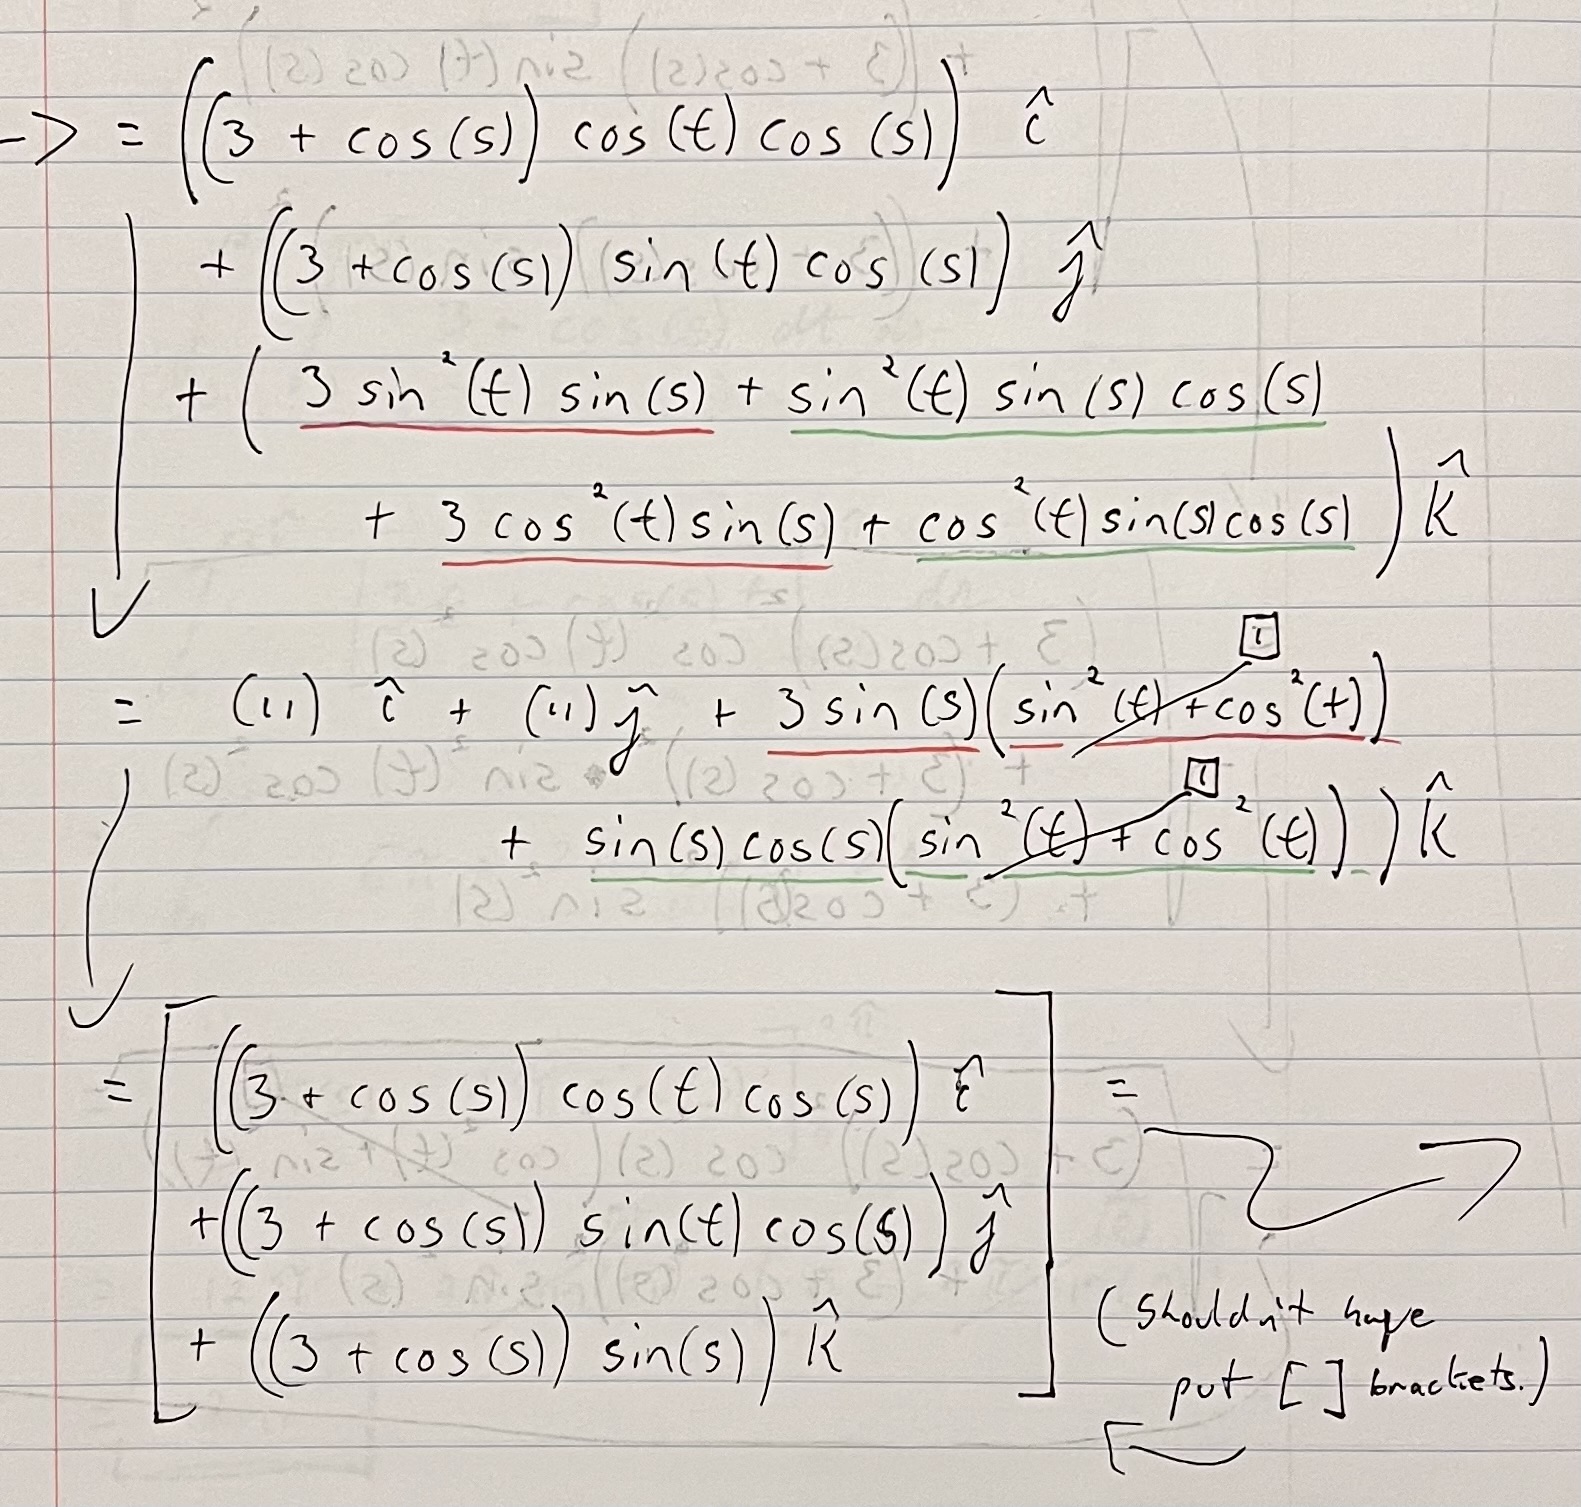 -> = ((3 + cos(s)) cos(t) cos(s)) î
+ ((3 + cos(s)) sin(t) cos(s)) ĵ
+ ( 3 sin²(t) sin(s) + sin²(t) sin(s) cos(s)
+ 3 cos²(t) sin(s) + cos²(t) sin(s) cos(s) ) k̂
= (11) î + (11) ĵ + 3 sin(s)(sin²(t) + cos²(t)) 1
+ sin(s) cos(s)(sin²(t) + cos²(t)) ) k̂ 1
= [ ((3 + cos(s)) cos(t) cos(s)) î ] =
+ ((3 + cos(s)) sin(t) cos(s)) ĵ
+ ((3 + cos(s)) sin(s)) k̂
(Shouldn't have
put [ ] brackets.)